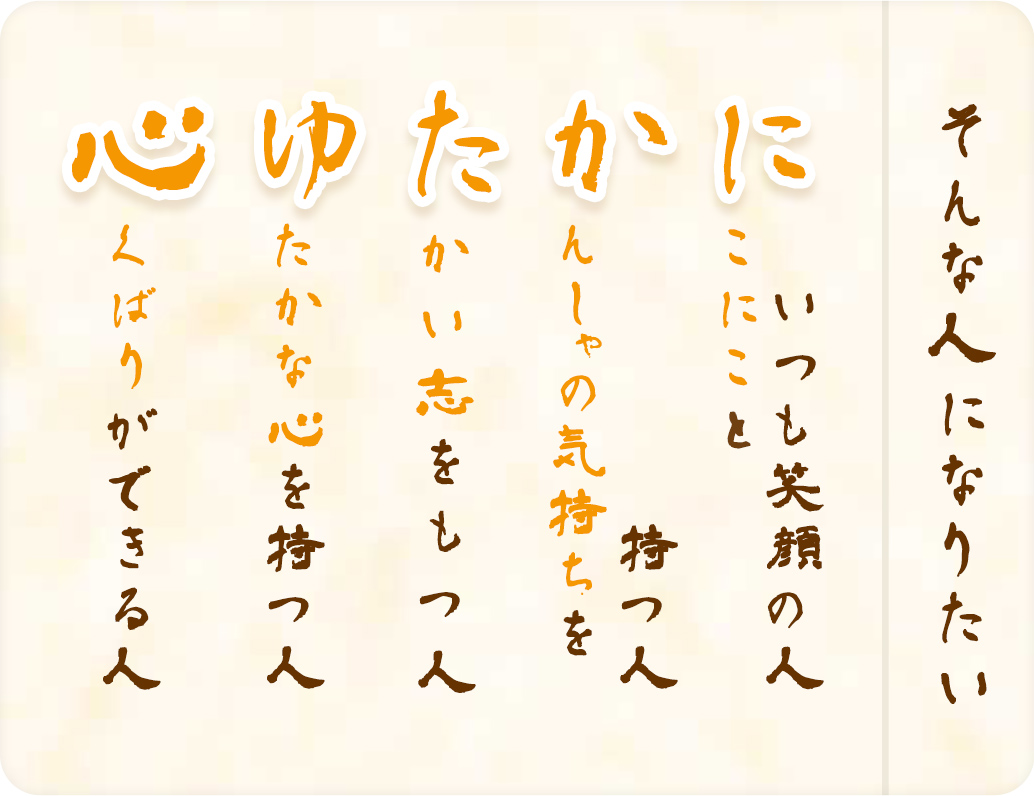 心ゆたかに
くばりができる人
たかな心を持つ人
かい志をもつ人
んしゃの気持ちを
持つ人
こにこと
いつも笑顔の人
そんな人になりたい